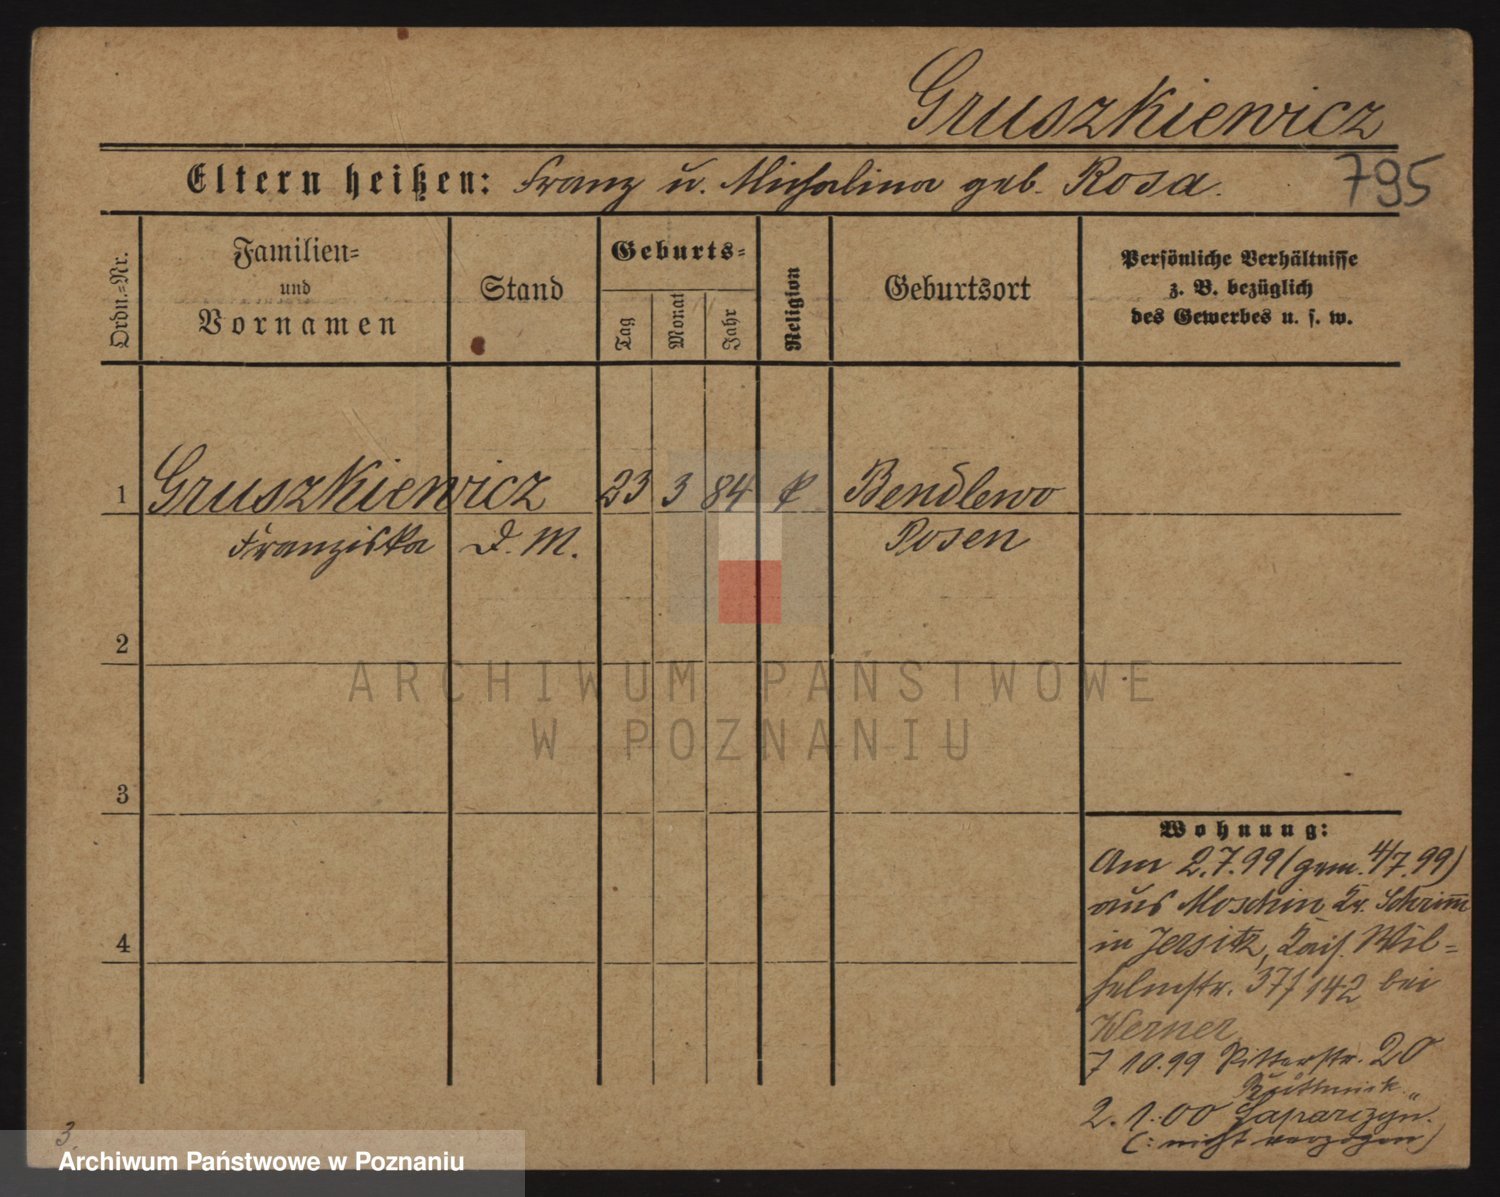 Gruszkiewicz
795
Eltern heißen: Franz u. Michalina geb. Rosa.
Ordn.=Nr.
Familien=
und
Vornamen
Stand
Geburts=
Tag
Monat
Jahr
Religion
Geburtsort
Persönliche Verhältnisse
z. B. bezüglich
des Gewerbes u. s. w.
1 Gruszkiewicz 23 3 84 k Bendlewo
Franziska D. M. Posen
2
3
4
Wohnung:
Am 2.7.99 (gem. 4/7.99)
aus Moschin Kr. Schrimm
in Jersitz, Kais. Wil=
helmstr. 37/142 bei
Werner
7 10.99 Ritterstr. 20
2. 1. 00
(: nicht verzogen)
3.
ARCHIWUM PAŃSTWOWE
W POZNANIU
Archiwum Państwowe w Poznaniu